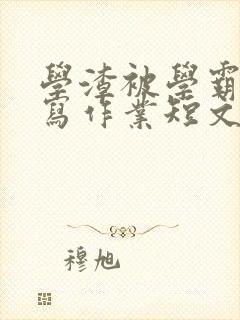 學渣被學霸
寫作業短文
穆旭